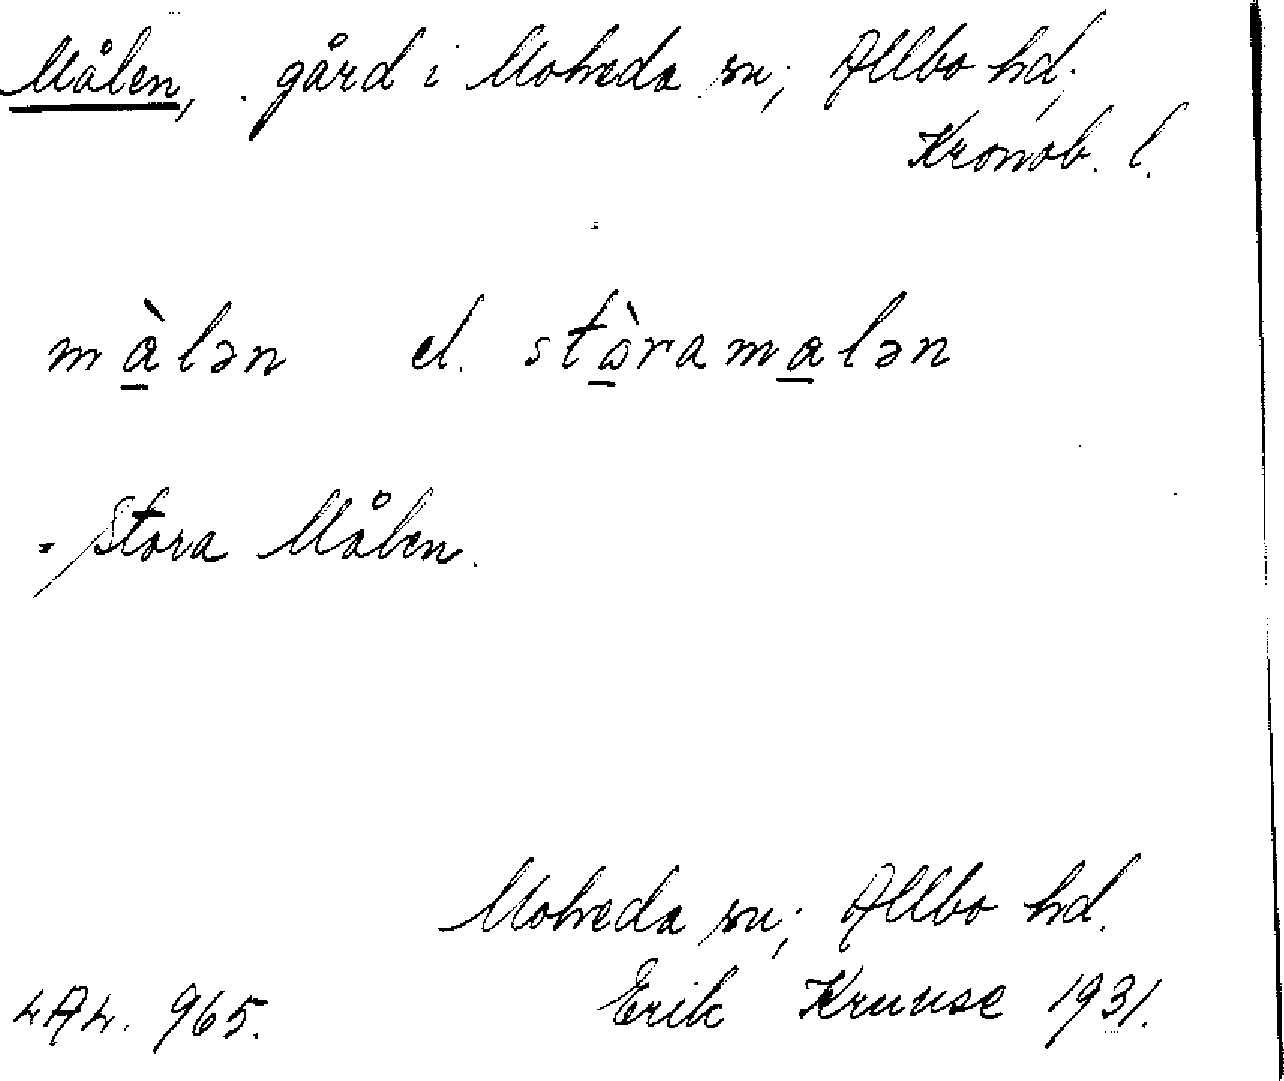 Målen, gård i Moheda sn; Allbo hd;
Kronob. l.
mà̱lən el. stò̱rama̱lən
= Stora Målen.
Moheda sn; Allbo hd.
LAL. 965. Erik Kruuse 1931.